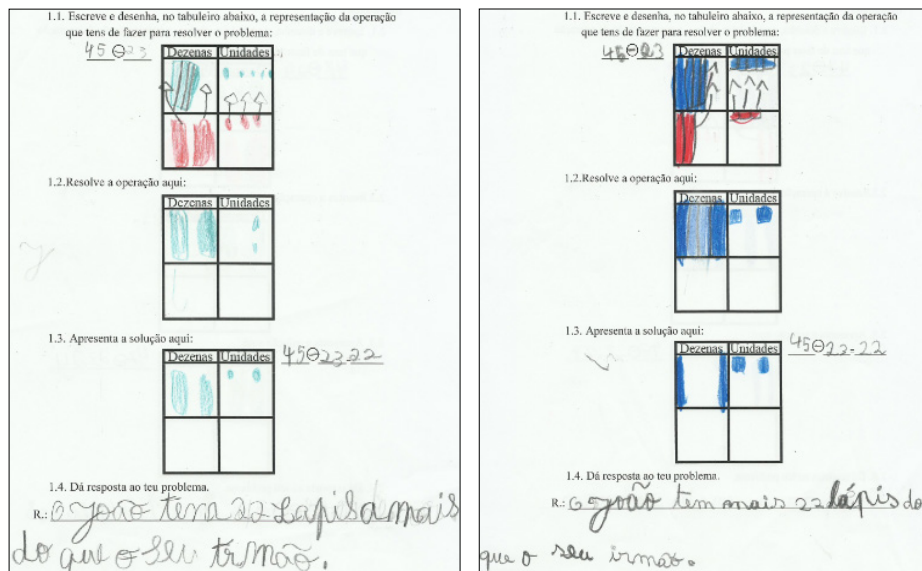 1.1. Escreve e desenha, no tabuleiro abaixo, a representação da operação
que tens de fazer para resolver o problema:
45⊖23
Dezenas Unidades
1.2.Resolve a operação aqui:
Dezenas Unidades
1.3. Apresenta a solução aqui:
Dezenas Unidades
45⊖23-22
1.4. Dá resposta ao teu problema.
R.: O João tena 22 Lapis a mais
do que o seu irmão.
1.1. Escreve e desenha, no tabuleiro abaixo, a representação da operação
que tens de fazer para resolver o problema:
45⊖23
Dezenas Unidades
1.2.Resolve a operação aqui:
Dezenas Unidades
1.3. Apresenta a solução aqui:
Dezenas Unidades
45⊖22-22
1.4. Dá resposta ao teu problema.
R.: O João tem mais 22 lápis do
que o seu irmão.